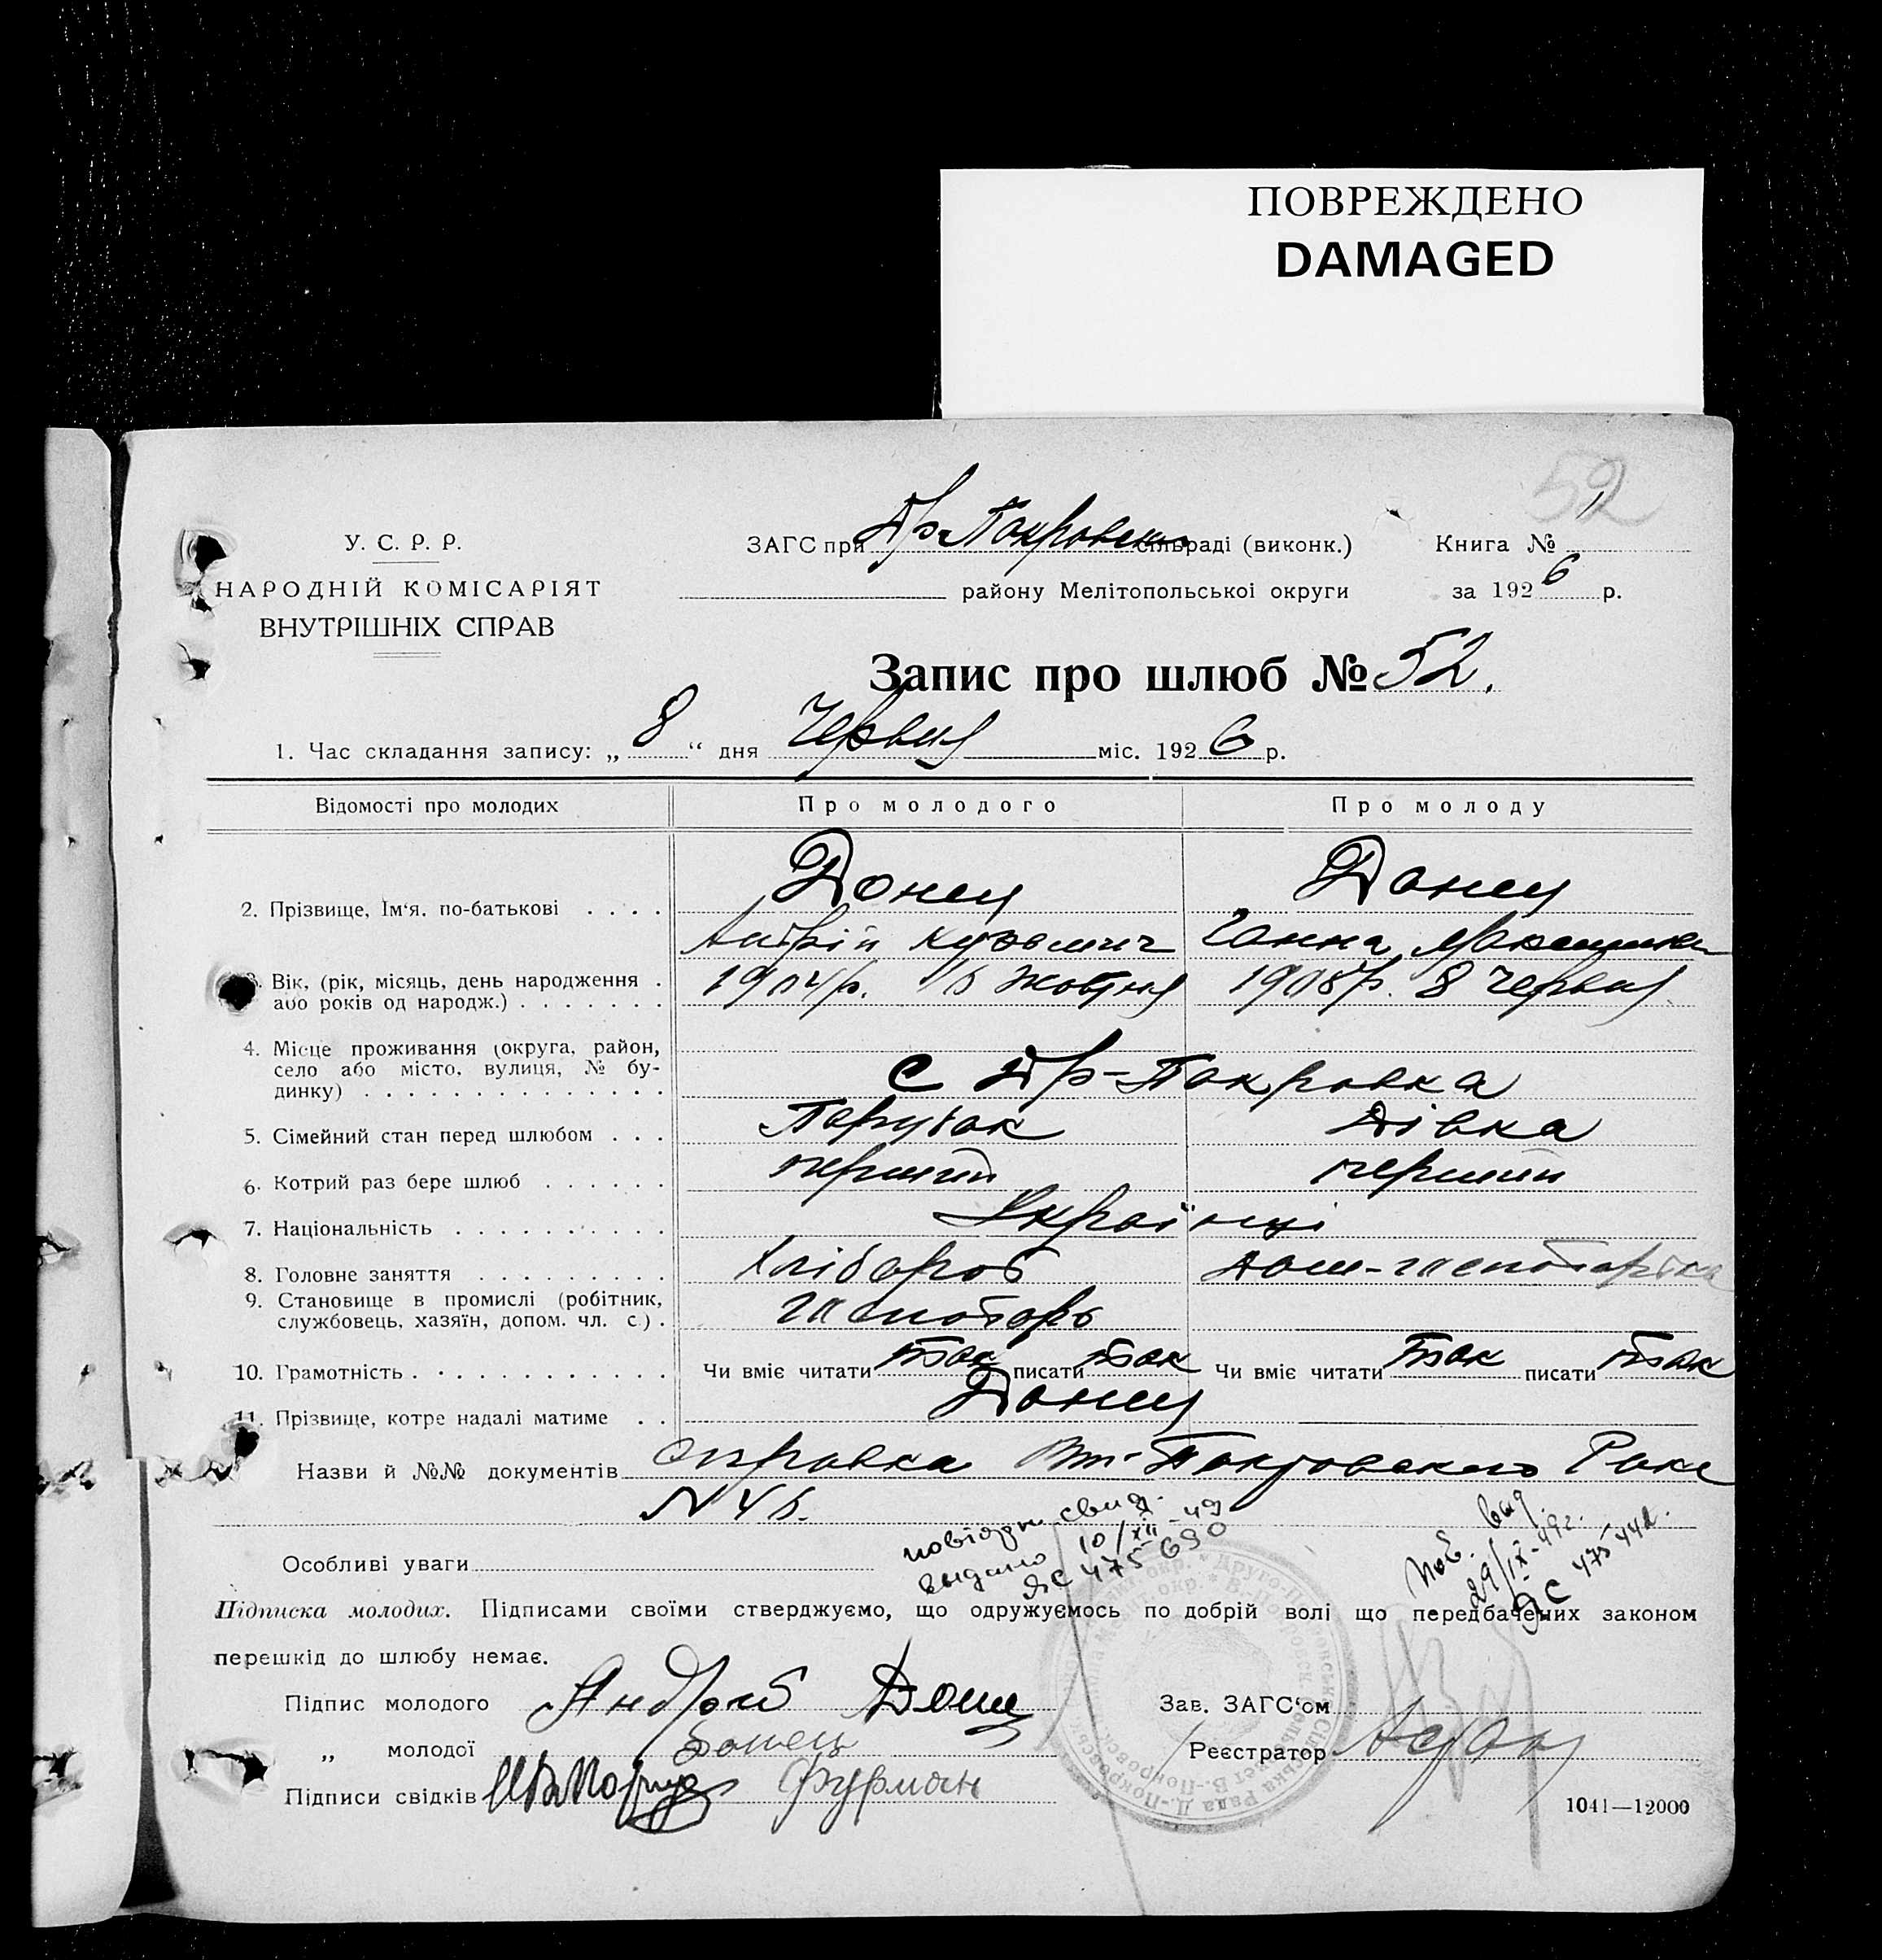 ПОВРЕЖДЕНО
DAMAGED
52
У. С. Р. Р.
НАРОДНІЙ КОМІСАРІЯТ
ВНУТРІШНІХ СПРАВ
ЗАГС при Др-Покровськ сільраді (виконк.)
району Мелітопольськоі округи
Книга № 1
за 1926 р.
Запис про шлюб № 52.
1. Час складання запису: „ 8 “ дня Червня міс. 1926 р.
Відомості про молодих Про молодого Про молоду
2. Прізвище, Ім‘я. по-батькові . . . . Донец Донец
Андрій Кузьмич Ганна Максимов
3. Вік, (рік, місяць, день народження . 1904 р. Жовтня 1908 р. 8 Червня
або років од народж.) . . . . . . .
4. Місце проживання (округа, район,
село або місто, вулиця, № бу-
динку) . . . . . . . . . . . . . . с Др-Покровка
5. Сімейний стан перед шлюбом . . . Парубак Дівка
6. Котрий раз бере шлюб . . . . . . перший перший
7. Національність . . . . . . . . . . Українці
8. Головне заняття . . . . . . . . . Хлібароб дом-господарка
9. Становище в промислі (робітник,
службовець, хазяїн, допом. чл. с.) . господарь
10. Грамотність . . . . . . . . . . . . Чи вміє читати так писати так Чи вміє читати так писати так
11. Прізвище, котре надалі матиме . . Донец
Назви й №№ документів справка Вт-Покровского
N
Особливі уваги
свид.
выдано 10/XII-49
ЯС 475690
Пов. выд.
29/IX-49г.
ЯС 475442.
Підписка молодих. Підписами своїми стверджуємо, що одружуємось по добрій волі що передбачених законом
перешкід до шлюбу немає.
Підпис молодого Андрей Донец
„ молодої Донець
Підписи свідків Фурман
Зав. ЗАГС‘ом
Реєстратор
1041—12000